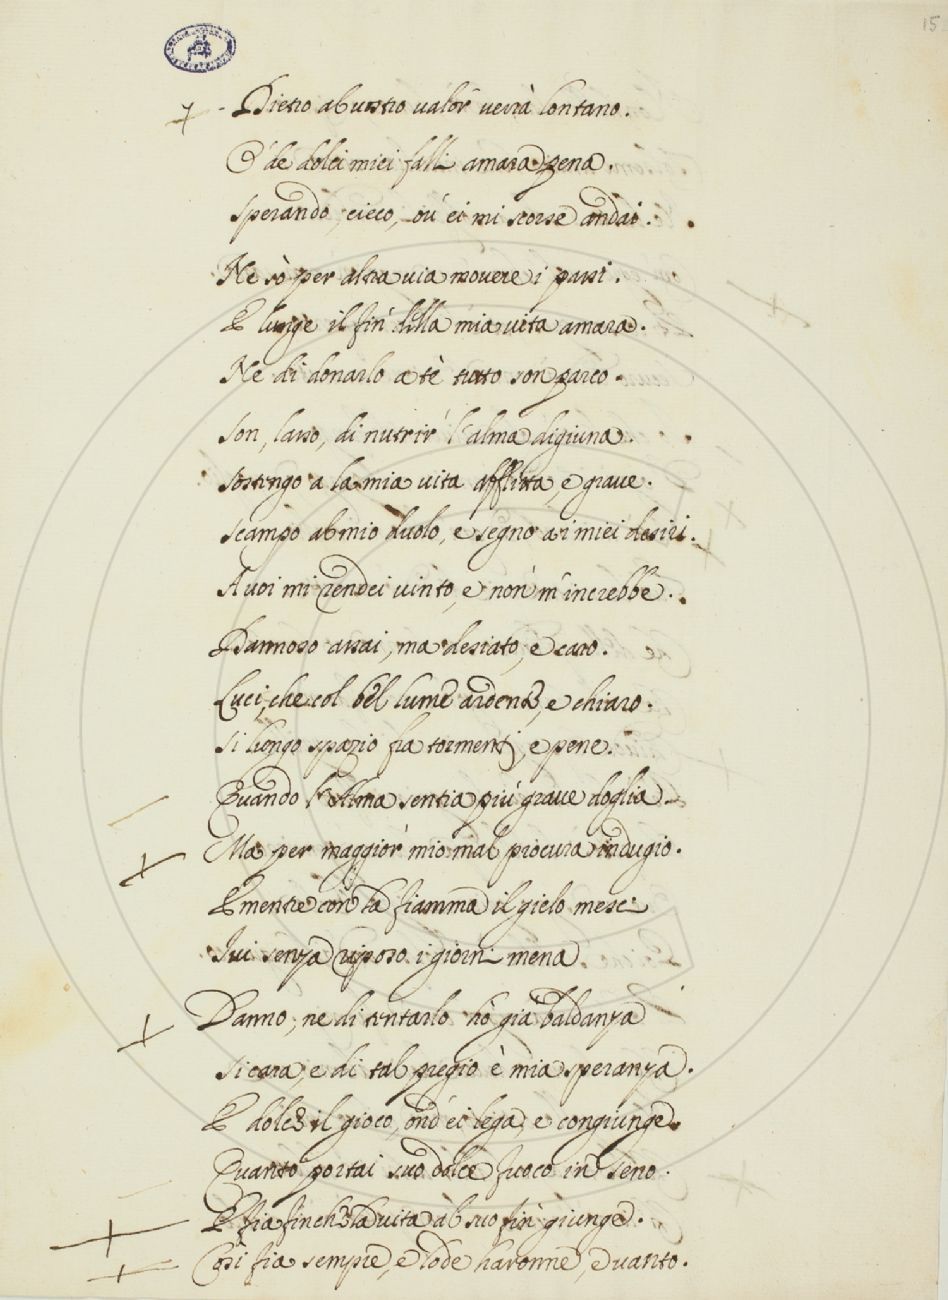 15
Dietro al vostro valor verrà lontano.
E de dolci miei falli amara pena.
Sperando, cieco, ou' ei mi scorse andai.
Ne sò per altra via movere i passi.
E lunge il fin della mia vita amara.
Ne di donarlo a tè tutto son parco.
Son, lasso, di nutrir l'alma digiuna.
Sostengo a la mia vita afflitta, e grave.
Scampo al mio duolo, e segno a i miei desiri.
A voi mi rendei vinto, e non m'increbbe.
Dannoso assai, ma desiato, e caro.
Luci, che col bel lume ardente, e chiaro.
Si lungo spazio fra tormenti, e pene.
Quando l'Alma sentia più grave doglia.
Ma per maggior mio mal procura indugio.
E mentre con la fiamma il gielo mesce
Ivi senza riposo i giorni mena
Danno, ne di tentarlo hò già baldanza
Si cara, e di tal pregio è mia speranza.
E dolce il gioco, ond' ei lega, e congiunge.
Quanto portai suo dolce fuoco in seno.
E fia finche la vita al suo fin giunge.
Così fia sempre, e lode havronne, e vanto.